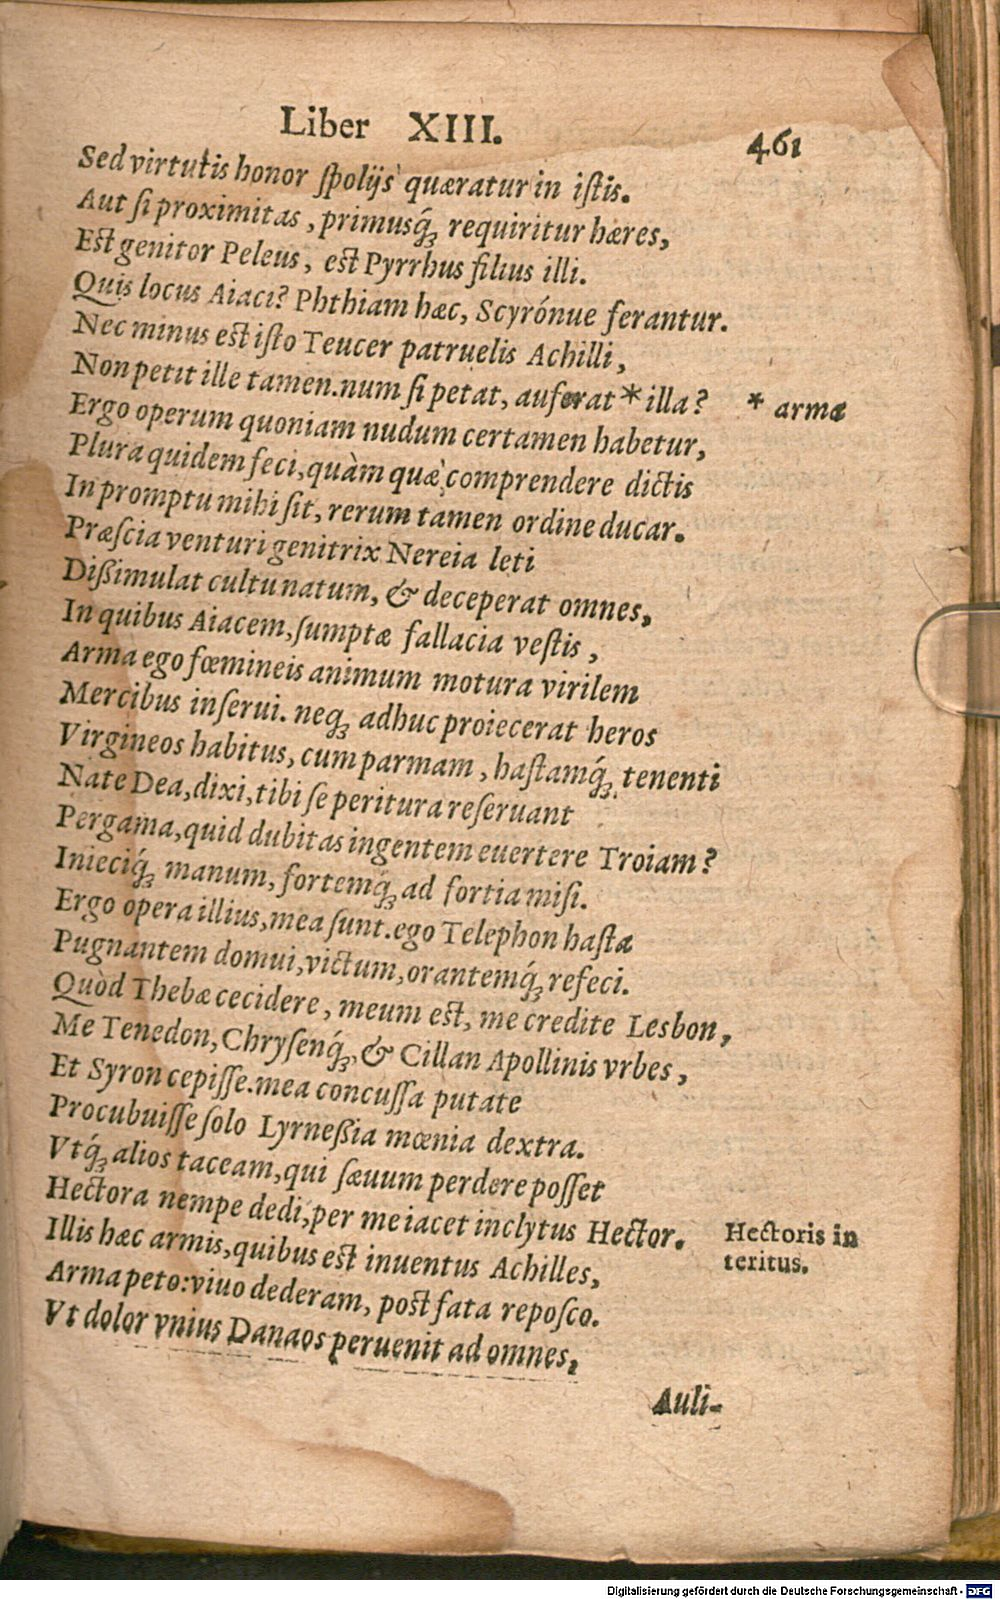 Liber XIII. 461
Sed virtutis honor ſpolijs quæratur in iſtis.
Aut ſi proximitas, primusq́ꝫ requiritur hæres,
Est genitor Peleus, est Pyrrhus filius illi.
Quis locus Aiaci? Phthiam hæc, Scyrónue ferantur.
Nec minus est iſto Teucer patruelis Achilli,
Non petit ille tamen. num ſi petat, auferat * illa? * arma
Ergo operum quoniam nudum certamen habetur,
Plura quidem feci, quàm quæ comprendere dictis
In promptu mihi ſit, rerum tamen ordine ducar.
Præſcia venturi genitrix Nereia leti
Dißimulat cultu natum, & deceperat omnes,
In quibus Aiacem, ſumptæ fallacia veſtis,
Arma ego fœmineis animum motura virilem
Mercibus inſerui. neqꝫ adhuc proiecerat heros
Virgineos habitus, cum parmam, haſtamq́ꝫ tenenti
Nate Dea, dixi, tibi ſe peritura reſeruant
Pergama, quid dubitas ingentem euertere Troiam?
Inieciq́ꝫ manum, fortemq́ꝫ ad fortia miſi.
Ergo opera illius, mea ſunt. ego Telephon haſta
Pugnantem domui, victum, orantemq́ꝫ refeci.
Quòd Thebæ cecidere, meum est, me credite Lesbon,
Me Tenedon, Chryſenq́ꝫ, & Cillan Apollinis vrbes,
Et Syron cepiſſe. mea concuſſa putate
Procubuiſſe ſolo Lyrneßia mœnia dextra.
Vtq́ꝫ alios taceam, qui ſæuum perdere poſſet
Hectora nempe dedi, per me iacet inclytus Hector. Hectoris in
Illis hæc armis, quibus est inuentus Achilles, teritus.
Arma peto: viuo dederam, post fata repoſco.
Vt dolor vnius Danaos peruenit ad omnes,
Auli-
Digitalisierung gefördert durch die Deutsche Forschungsgemeinschaft - DFG